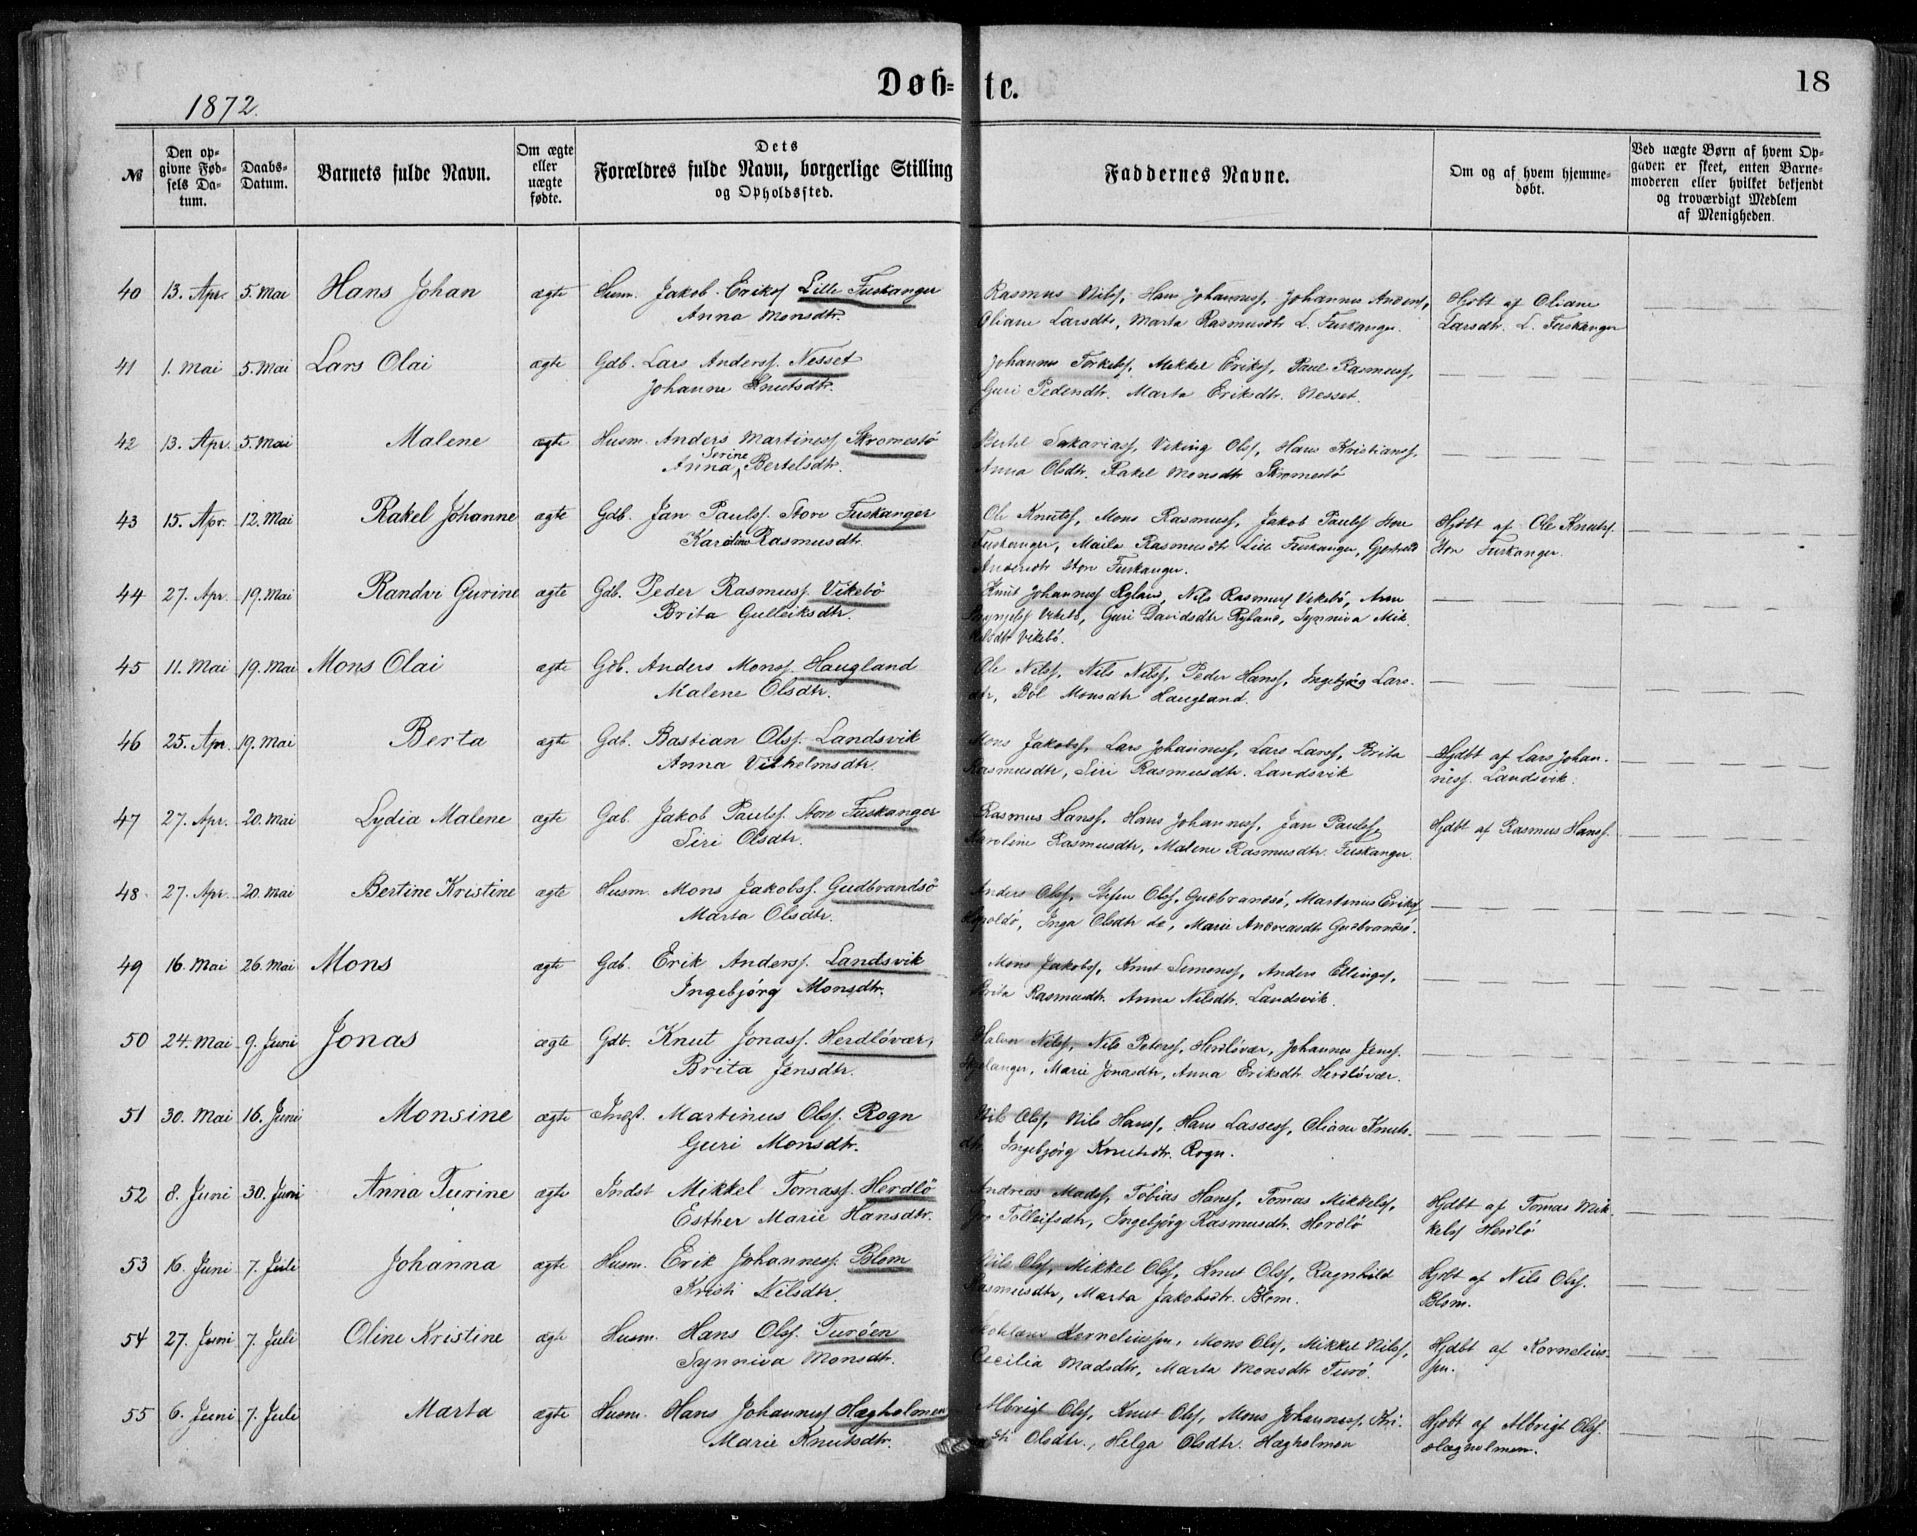 Døb=te.
18
1872.
№
Den op-
givne Fød-
sels Da-
tum.
Daabs-
Datum.
Barnets fulde Navn.
Om ægte
eller
uægte
fødte.
Dets
Forældres fulde Navn, borgerlige Stilling
og Opholdssted.
Faddernes Navne.
Om og af hvem hjemme-
døbt.
Ved uægte Børn af hvem Op-
gaven er skeet, enten Barne-
moderen eller hvilket bekjendt
og troværdigt Medlem
af Menigheden.
40 13. Apr. 5. Mai Hans Johan ægte Husm. Jakob Eriks. Lille Fuskanger
Anna Monsdtr.
Rasmus Nilss, Hans Johanness, Johannes Anderss,
Oliane Larsdtr, Marta Rasmusdtr L. Fuskanger.
Hjdbt af Oliane
Larsdtr. L. Fuskanger
41 1. Mai 5. Mai Lars Olai ægte Gdb. Lars Anderss. Nesset
Johanne Knutsdtr.
Johannes Torkelss, Mikkel Eriks, Paul Rasmuss,
Guri Pedersdtr. Marta Eriksdtr. Nesset.
42 13. Apr. 5. Mai Malene ægte Husm. Anders Martinuss Skromestø
Anna Serine Bertelsdtr.
Bertel Sakariass, Viking Olss, Hans Kristianss,
Anna Olsdtr. Rakel Monsdtr Skromestø
43 15. Apr. 12. Mai Rakel Johanne ægte Gdb. Jan Paulss. Store Fuskanger
Karoline Rasmusdtr.
Ole Knutss, Mons Rasmuss, Jakob Paulss Store
Fuskanger, Maila Rasmusdtr Lille Fuskanger, Gjertrud
Andersdtr Store Fuskanger.
Hjdbt af Ole Knutss.
Store Fuskanger.
44 27. Apr. 19. Mai Randvi Gurine ægte Gdb. Peder Rasmuss. Vikebø
Brita Gulleiksdtr.
Knut Johanness Ryland, Nils Rasmuss Vikebø, Arne
Vikebø, Guri Davidsdtr Ryland, Synniva Mik-
kelsdtr Vikebø.
45 11. Mai 19. Mai Mons Olai ægte Gdb. Anders Monss. Haugland
Malene Olsdtr.
Ole Nilss, Nils Nilss, Peder Hanss, Ingebjørg Lars-
dtr, Bøl Monsdtr Haugland.
46 25. Apr. 19. Mai Berta ægte Gdb. Bastian Olss. Landsvik
Anna Vilhelmsdtr.
Mons Jakobss, Lars Johanness, Lars Larss, Brita
Rasmusdtr, Siri Rasmusdtr. Landsvik
Hjdbt af Lars Johan-
ness. Landsvik.
47 27. Apr. 20. Mai Lydia Malene ægte Gdb. Jakob Paulss. Store Fuskanger
Siri Olsdtr.
Rasmus Hanss, Hans Johanness, Jan Paulss,
Karoline Rasmusdtr, Malene Rasmusdtr. Fuskanger.
Hjdbt af Rasmus Hanss.
48 27. Apr. 20. Mai Bertine Kristine ægte Husm. Mons Jakobss. Gudbrandsø
Marta Olsdtr.
Anders Olss, Steffen Olss, Gudbrandsø, Martinus Erikss
Inga Olsdtr do, Marie Andreasdtr Gudbrandsø.
49 16. Mai 26. Mai Mons ægte Gdb. Erik Anderss. Landsvik
Ingebjørg Monsdtr.
Mons Jakobss, Knut Semonss, Anders Ellingss,
Brita Rasmusdtr. Anna Nilsdtr. Landsvik.
50 24. Mai 9. Juni Jonas ægte Gdb. Knut Jonass. Herdløvær,
Brita Jensdtr.
Halvor Nilss, Nils Peterss, Herdløvær, Johannes Jenss.
Marie Jonasdtr, Anna Eriksdtr Herdløvær.
51 30. Mai 16. Juni Monsine ægte Inds. Martinus Olss. Rogn
Guri Monsdtr.
Nils Olss, Nils Hanss, Hans Lassess, Oliane Knuts-
dtr. Ingebjørg Knutsdtr. Rogn.
52 8. Juni 30. Juni Anna Turine ægte Indst Mikkel Tomass. Herdlø
Esther Marie Hansdtr.
Andreas Madss, Tobias Hanss, Tomas Mikkelss,
Tolleifsdtr, Ingebjørg Rasmusdtr. Herdlø
Hjdbt af Tomas Mik-
kelss Herdlø
53 16. Juni 7. Juli Johanna ægte Husm. Erik Johanness. Blom
Kristi Nilsdtr.
Nils Olss, Mikkel Olss, Knut Olss, Ragnhild
Rasmusdtr, Marta Jakobsdtr. Blom.
Hjdbt af Nils Olss.
Blom.
54 27. Juni 7. Juli Oline Kristine ægte Husm. Hans Olss. Turøen
Synniva Monsdtr.
Korneliussen, Mons Olss, Mikkel Nilss,
Cecilia Madsdtr, Marta Monsdtr Turø.
Hjdbt af Kornelius-
sen.
55 6. Juni 7. Juli Marta ægte Husm. Hans Johanness Hægholmen
Marie Knutsdtr.
Albrigt Olss, Knut Olss, Mons Johanness. Kri-
sti Olsdtr., Helga Olsdtr. Hægholmen
Hjdbt af Albrigt Olss.
Hægholmen.